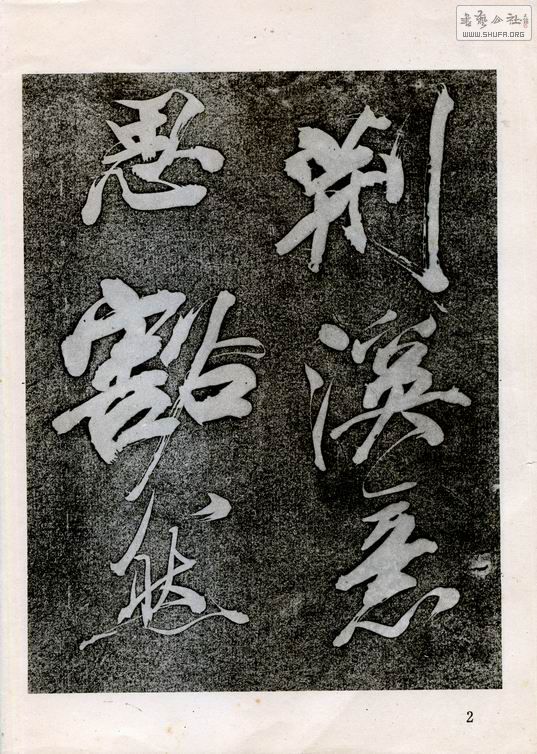 書藝公社
WWW.SHUFA.ORG
荆溪意
思豁然
2